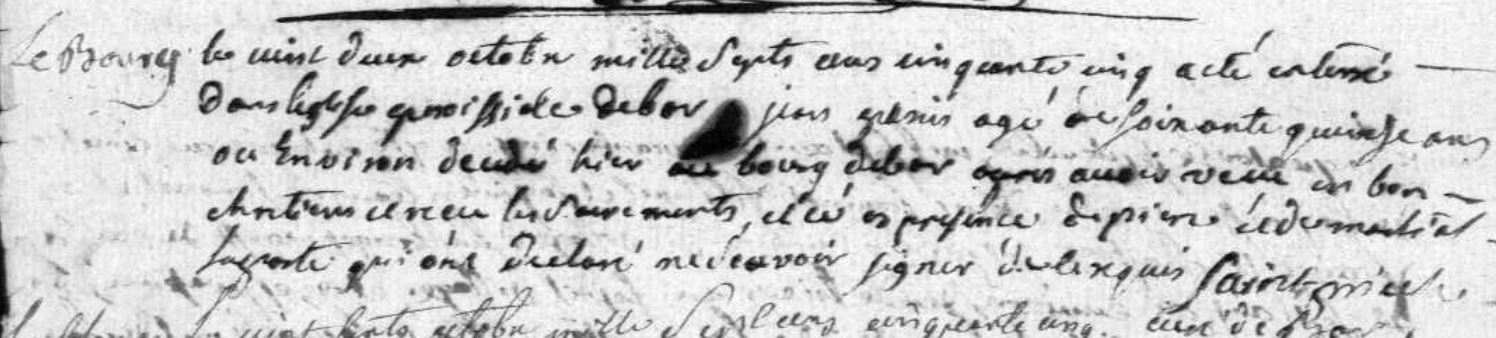 Le Bourg le vint deux octobre mille septs cens cinquante cinq a eté enterré
dans leglise paroissiale debor jean agé de soixante quinse ans
ou Environ decedé hier au bourg debor apres avoir vecu en bon
chretiens et receu les Sacrements, et ce en presence de pierre et de martial
laporte qui ont declaré ne scavoir signer de ce requis
Le vint octobre mille Sept cens cinquante cinq